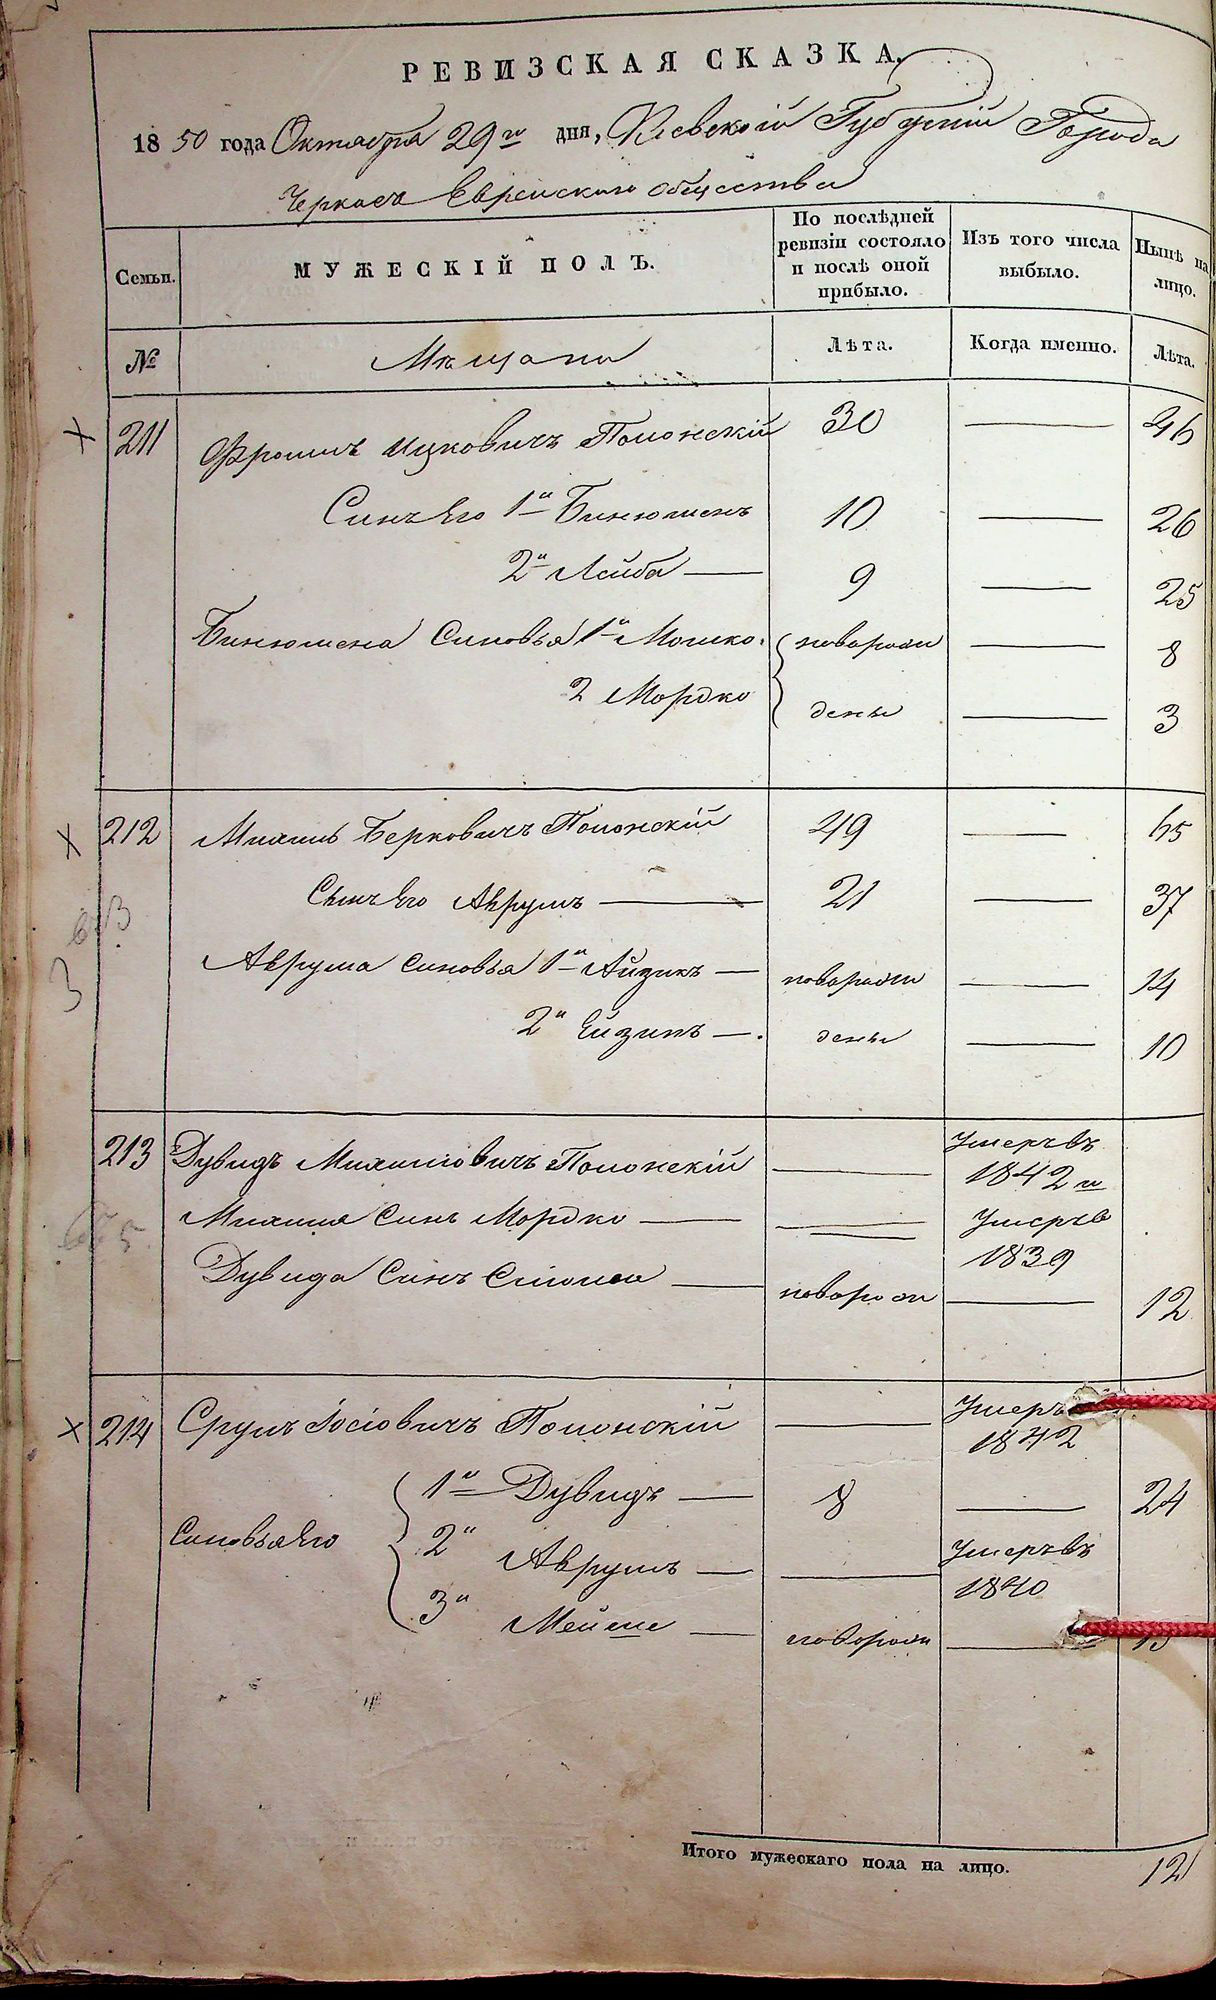 РЕВИЗСКАЯ СКАЗКА.
1850 года Октября 29го дня, Кіевской Губерніи Города
Черкасъ Еврейскаго общества
Семьи.
МУЖЕСКІЙ ПОЛЪ.
По послѣдней ревизіи состояло и послѣ оной прибыло.
Изъ того числа выбыло.
Нынѣ на лицо.
№
Мѣщане
Лѣта.
Когда именно.
Лѣта.
211 Фроимъ Ицковичъ Полонскій 30 — 46
Синъ Его 1й Бинюменъ 10 — 26
2й Лейба — 9 — 25
Бинюмена Синовья 1й Мошко новорож — 8
2 Мордко дены — 3
212 Михель Берковичъ Полонскій 49 — 65
Сынъ Его Аврумъ — 21 — 37
Аврума Синовья 1й Айзикъ — новорож — 14
2й Ейзикъ — дены — 10
213 Дувидъ Михелевичъ Полонскій — Умеръ въ 1842 г
Михеля Синъ Мордко — — Умеръ в 1839
Дувида Синъ — новорож — 12
214 Срулъ Іосіовичъ Полонскій — Умеръ 1842
Синовья Его
1й Дувидъ — 8 — 24
2й Аврумъ — — Умеръ въ 1840
3й — новорож —
Итого мужескаго пола на лицо. 12